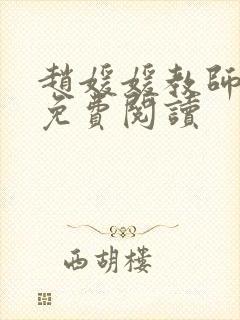 趙媛媛教師
免費閱讀
西胡樓